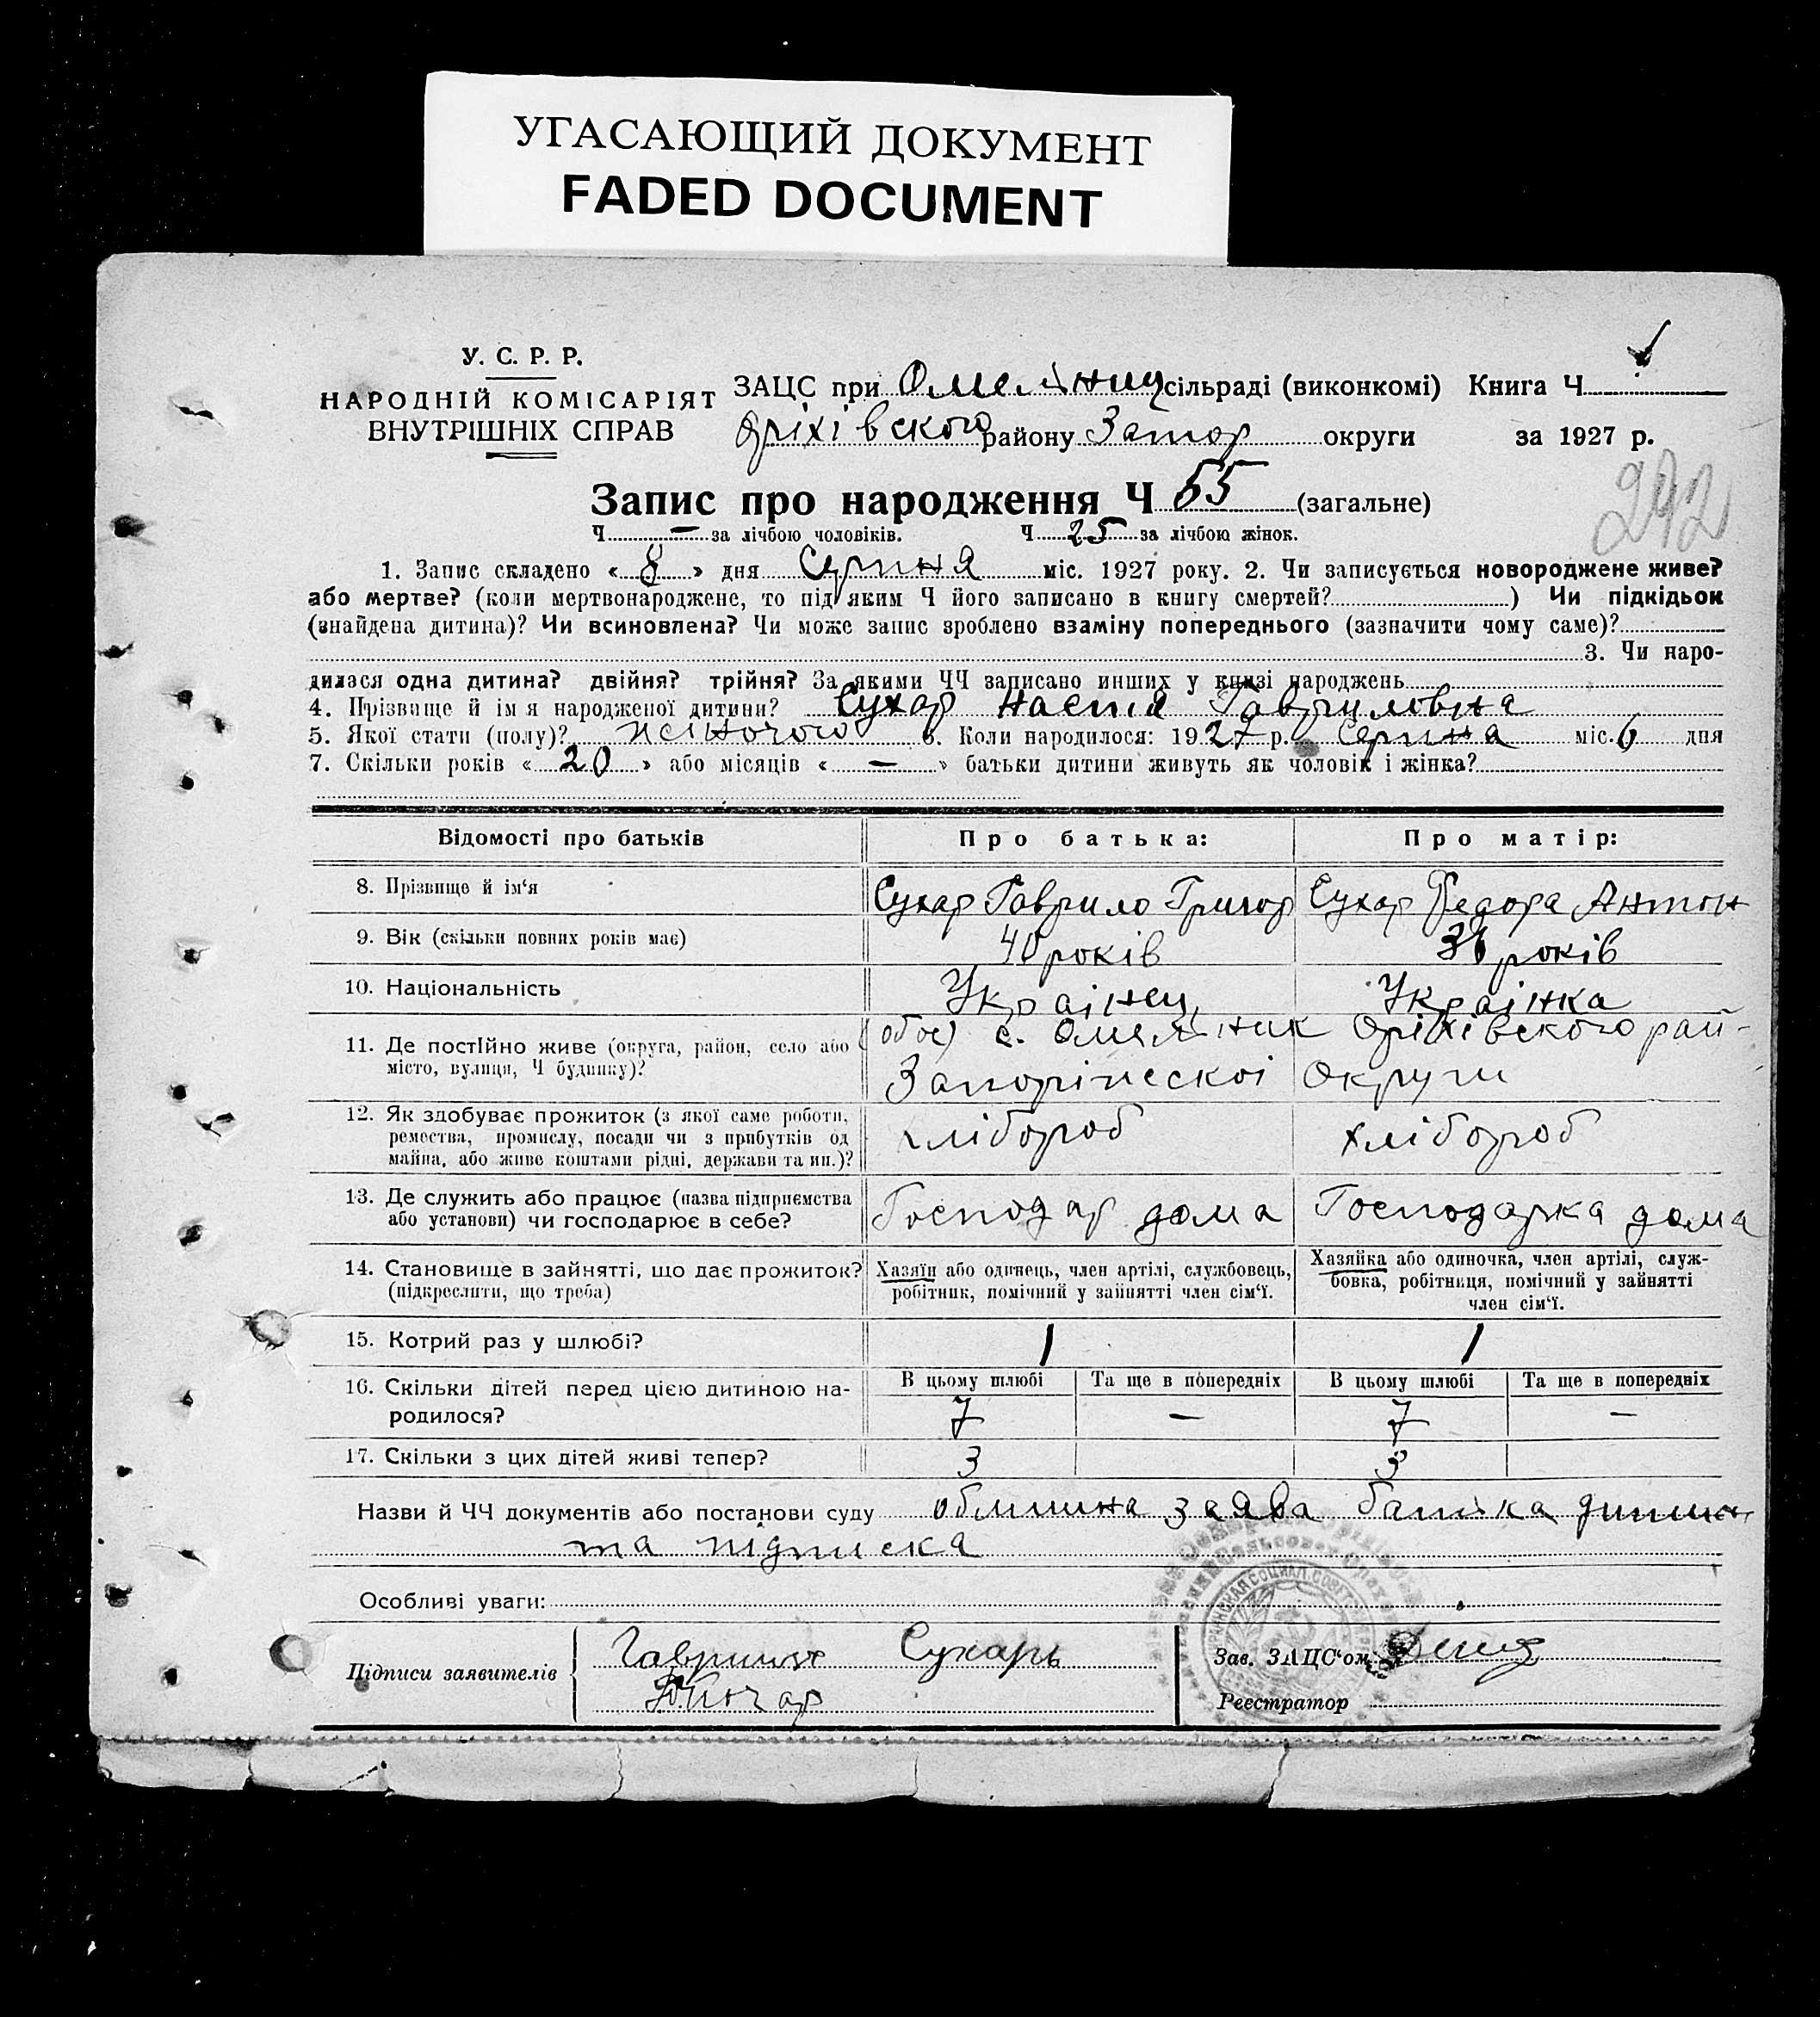 УГАСАЮЩИЙ ДОКУМЕНТ
FADED DOCUMENT
У. С. Р. Р.
НАРОДНІЙ КОМІСАРІЯТ
ВНУТРІШНІХ СПРАВ
ЗАЦС при Омеляниц сільраді (виконкомі) Книга Ч
Оріхівского району Запор округи за 1927 р.
292
Запис про народження Ч 55 (загальне)
Ч — за лічбою чоловіків. Ч 25 за лічбою жінок.
1. Запис складено « 8 » дня Серпня міс. 1927 року. 2. Чи записується новороджене живе?
або мертве? (коли мертвонароджене, то під яким Ч його записано в книгу смертей? ) Чи підкідьок
(знайдена дитина)? Чи всиновлена? Чи може запис зроблено взаміну попереднього (зазначити чому саме)?
3. Чи наро-
дилася одна дитина? двійня? трійня? За якими ЧЧ записано инших у книзі народжень
4. Прізвище й ім я народженої дитини? Сухар Настя Гавриловна
5. Якої стати (полу)? жіночого 6. Коли народилося: 1927 р. Серпня міс. 6 дня
7. Скільки років « 20 » або місяців « — » батьки дитини живуть як чоловік і жінка?
Відомості про батьків Про батька: Про матір:
8. Прізвище й ім‘я Сухар Гаврило Григор Сухар Федора Антон
9. Вік (скільки повних років має) 40 років 36 років
10. Національність Украінец Украінка
11. Де постійно живе (округа, район, село або місто, вулиця, Ч будинку)? (обоє) с. Омеляник Оріхівского рай-
Запоріжскоі Округи
12. Як здобуває прожиток (з якої саме роботи, хлібороб хлібороб
ремества, промислу, посади чи з прибутків од
майна, або живе коштами рідні, держави та ин.)?
13. Де служить або працює (назва підприємства Господар дома Господарка дома
або установи) чи господарює в себе?
14. Становище в зайнятті, що дає прожиток? Хазяїн або одинець, член артілі, службовець, Хазяйка або одиночка, член артілі, служ-
(підкреслити, що треба) робітник, помічний у зайнятті член сім‘ї. бовка, робітниця, помічний у зайнятті
член сім‘ї.
15. Котрий раз у шлюбі? 1 1
16. Скільки дітей перед цією дитиною на- В цьому шлюбі Та ще в попередніх В цьому шлюбі Та ще в попередніх
родилося? 7 — 7 —
17. Скільки з цих дітей живі тепер? 3 3
Назви й ЧЧ документів або постанови суду заява батька дитини
та підписка
Особливі уваги:
Підписи заявителів Гаврило Сухарь Зав. ЗАЦС‘ом
Реєстратор